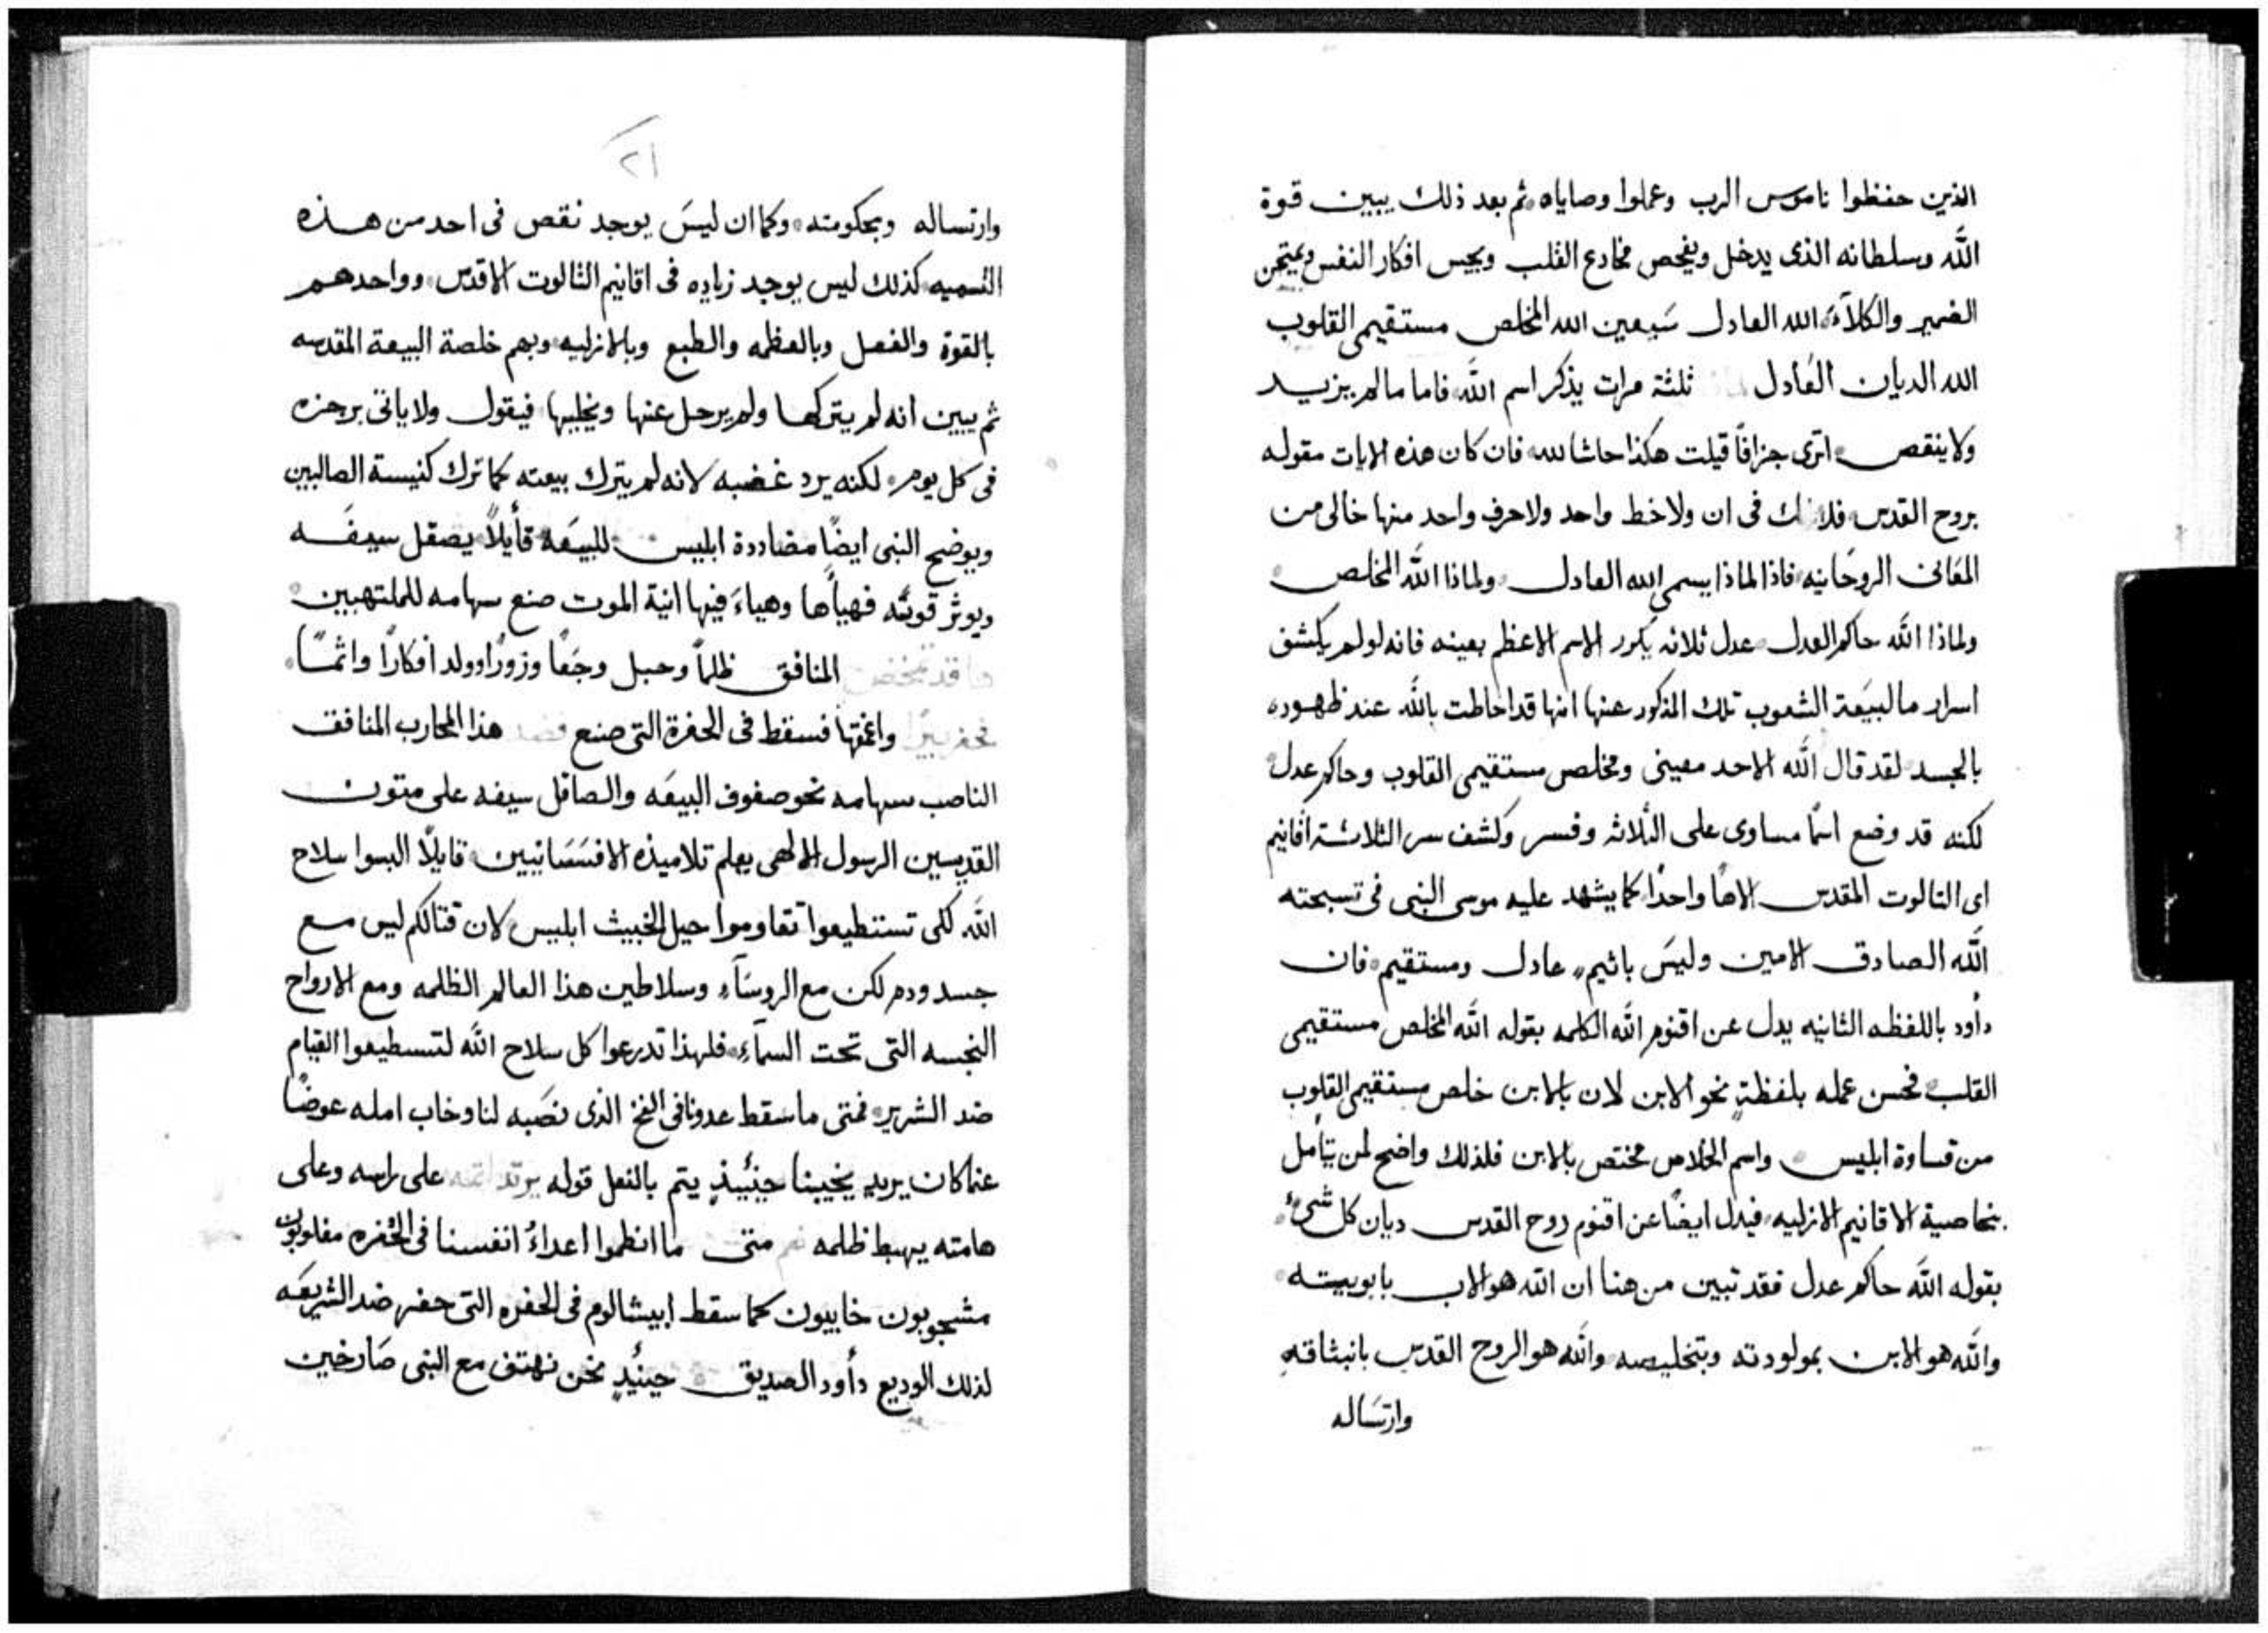 الذين حفظوا ناموس الرب وعملوا وصاياه ثم بعد ذلك يبين قوة
الله وسلطانه الذى يدخل ويفحص مخادع القلب ويجس افكار النفس ويمتحن
الضمير والكلآه الله العادل سَيعين الله المخلص مستقيمى القلوب
الله الديان العَادل ثلثة مرات يذكر اسم الله فاما مالم يزيد
ولاينقص اترى جزافًا قيلت هكذا حاشا لله فان كان هذه الايات مقوله
بروح القدس فلا فى ان ولاخط واحد ولاحرف واحد منها خالى من
المعَانى الروحَانيه فاذا لماذا يسمى الله العادل ولماذا الله المخلص
ولماذا الله حاكم العدل عدل ثلاثه يكرر الاسم الاعظم بعينه فانه لولم يكشف
اسرار ما لبيَعة الشعوب تلك المذكور عنها انها قد احاطت بالله عند ظهوره
بالجسد لقد قال الله الاحد معينى ومخلص مستقيمى القلوب وحاكم عدل
لكنه قد وضع اسمًا مساوى على الثلاثه وفسر وكشف سر الثلاثة أقانيم
اى التالوت المقدس الاهًا واحدًا كما يشهد عليه موسى النبى فى تسبحته
الله الصادق الامين وليسَ باثيم عادل ومستقيم فان
دأود باللفظه الثانيه يدل عن اقنوم الله الكلمه بقوله الله المخلص مستقيمى
القلب فحسن عمله بلفظةٍ نحو الابن لان بالابن خلص مستقيمى القلوب
من قساوة ابليس واسم الخلاص مختص بالابن فلذلك واضح لمن يتأمل
بخاصية الاقانيم الازليه فيدل ايضًا عن اقنوم روح القدس ديان كل شىء
بقوله الله حاكم عدل فقد تبين من هنا ان الله هو الاب بابوييته
والله هو الابن بمولودته وبتخليصه والله هو الروح القدس بانبثاقه
وارتسَاله
٢١
وارتساله وبحكومته وكما ان ليسَ يوجد نقص فى احد من هذه
التسميه كذلك ليس يوجد زياده فى اقانيم الثالوت الاقدس وواحد هم
بالقوة والفعل وبالعظمه والطبع وبالازليه وبهم خلصة البيعة المقدسه
ثم يبين انه لم يتركها ولم يرحل عنها ويخليها فيقول ولا ياتى برجزه
فى كل يوم لكنه يرد غضبه لانه لم يترك بيعته كما ترك كنيسة الصالبين
ويوضح النبى ايضًا مضاددة ابليس للبيعَه قأيلاً يصقل سيفَه
ويوثر قوسَه فهيأها وهياءَ فيها انية الموت صنع سهامه للملتهبين
المنافق ظلماً وحبل وجَعاً وزورًا وولد افكارًا واثمًا
واعمَقها فسقط فى الحفرة التى صنع هذا المحارب المنافق
الناصب سهامه نحو صفوف البيعَه والصاقل سيفه على متون
القديسين الرسول الالهى يعلم تلاميذه الافسَسَانيين قايلاً البسوا سلاح
الله لكى تستطيعوا تقاوموا حيل الخبيث ابليس لان قتالكم ليس مع
جسد ودم لكن مع الروسَآء وسلاطين هذا العالم الظلمه ومع الارواح
النجسه التى تحت السمآء فلهذا تدرعوا كل سلاح الله لتسطيعوا القيام
ضد الشرير فمتى ما سقط عدونا فى الفخ الذى نصَبه لنا وخاب امله عوضًا
عنما كان يريد يخيبنا حينئيذٍ يتم بالفعل قوله يرتد على راسه وعلى
هامته يهبط ظلمه متى ما انظموا اعداءُ انفسنا فى الحُفره مغلوبون
مشجوبون خابيون كما سقط ابيشالوم فى الحفره التى حفر ضد الشريعَه
لذلك الوديع دأود الصديق حينئذٍ نحن نهتف مع النبى صَارخين